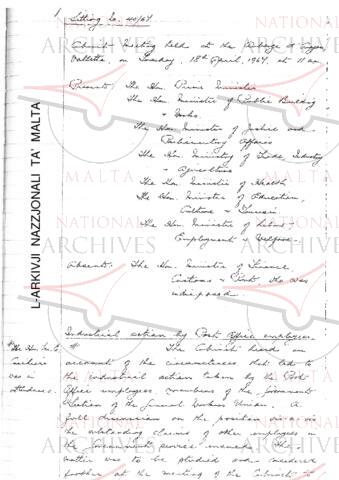 1
Sitting No. 40/67
Cabinet Meeting held at the Auberge d'
Valletta, on Tuesday, 18th April, 1967, at 11 am
Present: The Hon. Prime Minister
The Hon. Minister of Public Building
& Works.
The Hon. Minister of Justice and
Parliamentary Affairs
The Hon. Ministry of Trade, Industry
& Agriculture
The Hon. Minister of Health
The Hon. Minister of Education,
Culture & Tourism
The Hon. Minister of Labour
Employment & Welfare.
Absent: The Hon. Minister of Finance
Customs & Port, who was
indisposed.
Industrial action by Post Office employees
The Cabinet heard an
account of the circumstances that led to
the industrial action taken by the Post
Office employees, members of the Government
Section of the General Workers Union. A
full discussion on the position vis-a-vis
the outstanding claims of other employees
the Government service ensued. The
matter was to be studied and considered
further at the meeting of the Cabinet to
* The Hon.
was in
attendance.
L-ARKIVJI NAZZJONALI TA' MALTA
NATIONAL
ARCHIVES
MALTA
NATIONAL
ARCHIVES
MALTA
NATIONAL
ARCHIVES
MALTA